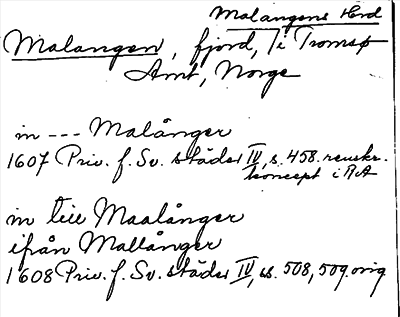 Malangens Herd
Malangen, fjord, i Tromsø
Amt, Norge
in --- Malånger
1607 Priv. f. Sv. städer IV, s. 458. renskr.
koncept i RA
in teie Maalånger
ifrån Mallånger
1608 Priv. f. Sv. städer IV, ss. 508, 509. orig